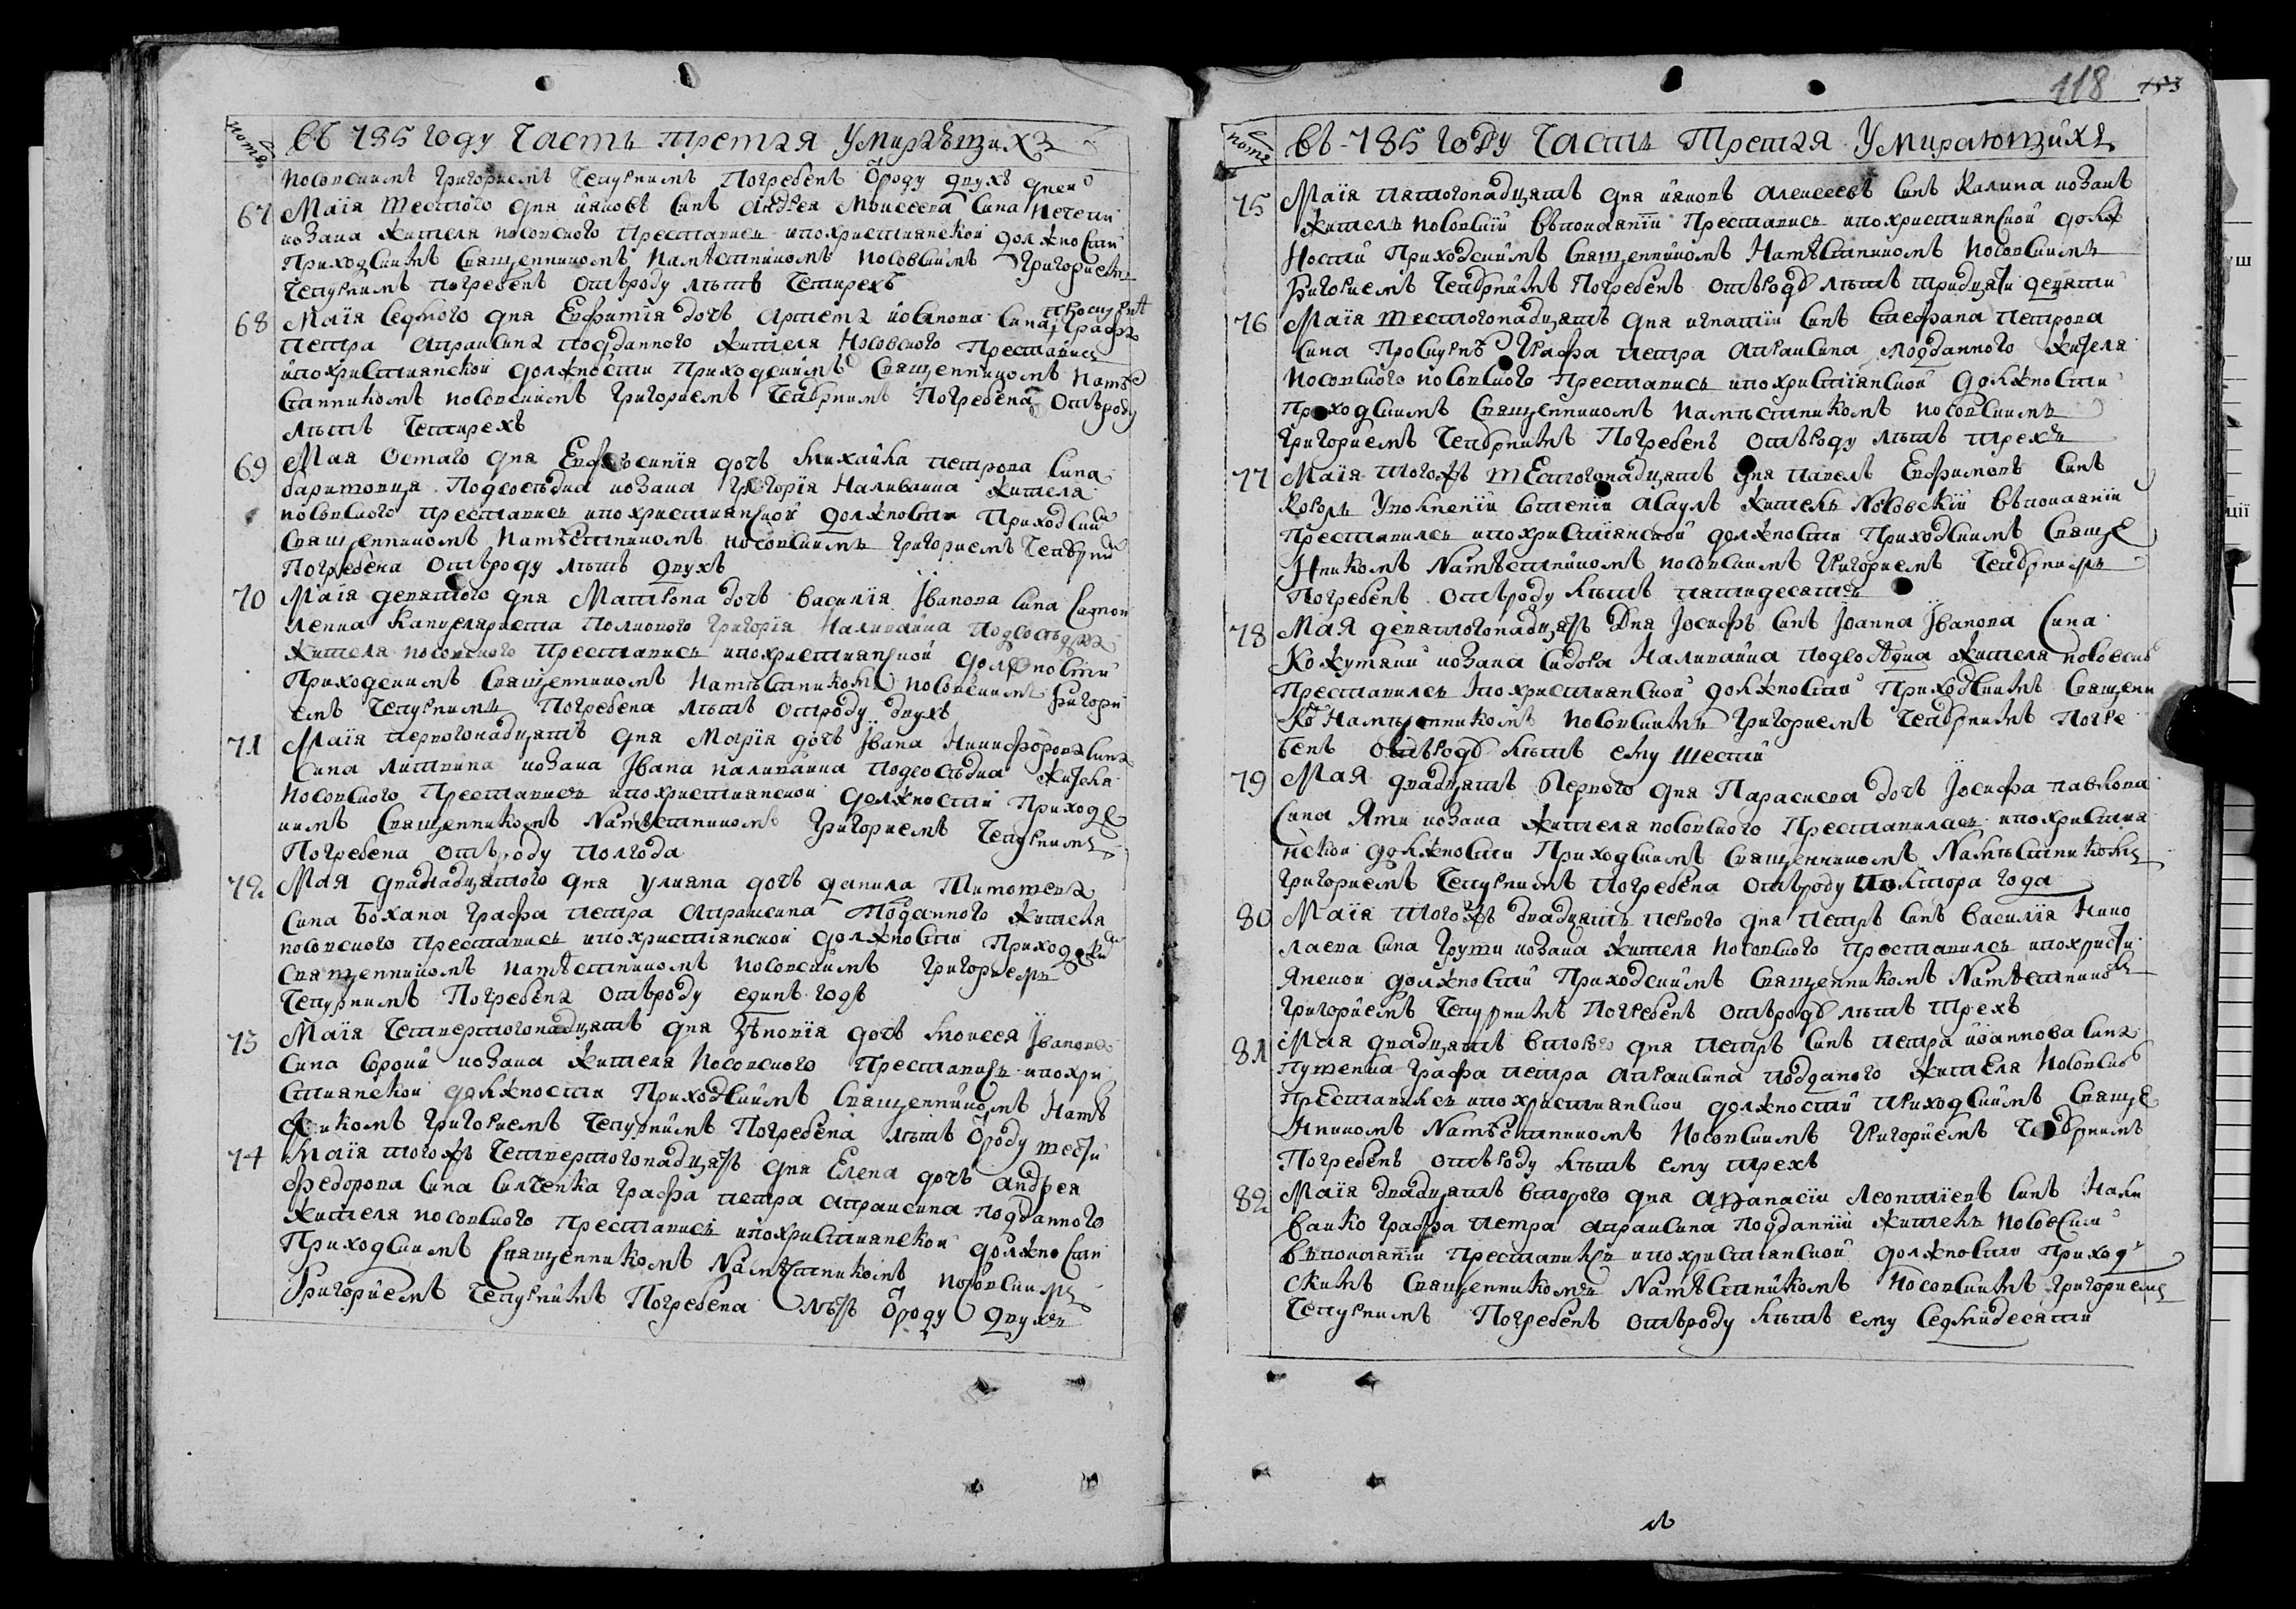 номъ
въ 785 году Часть третяя Умиръющихъ
Носовскимъ Григориемъ Чепурнимъ Погребенъ ѿроду двухъ дней
67 Маия шестого дня Ияковъ синъ Андрея Моисеева сина
козака жителя носовского Преставись по христианской должности
Приходскимъ Священникомъ Наместникомъ Носовскимъ Григориемъ
Чепурнимъ погребенъ отъроду летъ четирехъ
68 Маия седмого дня Евфимия дочъ Артемъ иоанова сина Проскурнѣ Графа
петра Апраксинъ подданного жителя Носовского Преставись
ипохристианской должности Приходскимъ Священникомъ Намѣ
стникомъ носовскимъ Григориемъ Чепурнимъ Погребена Отъроду
летъ Четирехъ
69 Мая Осмаго дня Евфросиния дочъ Михайла петрова сина
Подсосѣдка козака Григория Наливайка жителя
носовского преставись ипохристианской должности Приходским
Священникомъ Намѣстникомъ носовскимъ Григориемъ Чепурним
Погребена Отъроду летъ двухъ
70 Маия девятого дня Матрона дочъ Василия Иванова сина Самой
ленка Канцеляриста Полкового Григория Наливайка подсосѣдка
жителя носовского преставись ипохристианской должности
Приходскимъ Священникомъ Намѣстникомъ носовскимъ Григори
емъ Чепурнимъ Погребена летъ отроду двухъ
71 Маия первогонадцять дня Мария дочъ Ивана Никифорова сина
сина Литвина козака Ивана наливайка подсосѣдка жителя
Носовского Преставись ипохристианской должности Приходс
кимъ Священникомъ Намѣстникомъ Григориемъ Чепурнимъ
Погребена отъроду полгода
72 Мая двадцятого дня Улияна дочъ данила Тимошева
сина Бохана Графа петра Апраксина Подданного жителя
носовского преставись ипохристианской должности Приходским
Священникомъ намѣстникомъ носовскимъ Григориемъ
Чепурнимъ Погребенъ отъроду единъ годъ
73 Маия Четвертогонадцять дня Зѣновия дочъ Моисея Иванова
сина козака жителя Носовского Преставись ипохри
стианской должности Приходскимъ Священникомъ Намѣ
стникомъ Григориемъ Чепурнимъ Погребена летъ ѿроду шести
74 Маия тогожъ Четвертогонадцять дня Елена дочъ Андрея
Федорова сина Силченка Графа петра Апраксина подданного
жителя носовского преставись ипохристианской должности
Приходскимъ Священникомъ Намѣстникомъ носовскимъ
Григориемъ Чепурнимъ Погребена летъ ѿроду двухъ
118 153
номъ
въ 785 году Часть Третяя Умирающихъ
75 Маия пятогонадцять дня иаковъ Алексеевъ синъ Калина козакъ
житель носовский въпокаянии Преставись ипохристианской долж
ности Приходскимъ Священникомъ Намѣстникомъ Носовскимъ
Григориемъ Чепурнимъ Погребенъ отъроду летъ тридцати девяти
76 Маия шестогонадцять дня игнатии синъ Стефана петрова
сина Проскурнѣ Графа петра Апраксина Подданного жителя
Носовского носовского преставись ипохристианской должности
приходскимъ Священникомъ намѣстникомъ носовскимъ
Григориемъ Чепурнимъ Погребенъ отъроду летъ трехъ
77 Маия тогожъ шестогонадцять дня Павелъ Евфимовъ синъ
Король Асаулъ житель Носовский въпокаянии
преставилсь ипохристианской должности Приходскимъ Свяще
нникомъ Намѣстникомъ носовскимъ Григориемъ Чепурнимъ
Погребенъ отъроду летъ пятидесятъ
78 Мая девятогонадцять Дня Иосифъ синъ Иоанна Иванова сина
козака Сидора Наливайка подсосѣдка жителя носовск
преставилсь ипохристианской должности Приходскимъ Священи
комъ Намѣстникомъ Носовскимъ Григориемъ Чепурнимъ Погре
бенъ отъроду летъ ему шести
79 Мая двадцять Первого дня Параскева дочъ Иосифа павлова
сина Яти козака жителя носовского Преставилась ипохристиа
нской должности Приходскимъ Священникомъ Намѣстникомъ
Григориемъ Чепурнимъ погребена отъроду Полтора года
80 Маия тогожъ двадцять первого дня петръ синъ василия Нико
лаева сина Грути козака жителя носовского преставилсь ипохристи
янской должности Приходскимъ Священникомъ Намѣстником
Григориемъ Чепурнимъ Погребенъ отъроду летъ трехъ
81 Мая двадцять второго дня петръ синъ петра иоаннова сина
Путенка Графа петра Апраксина подданого жителя носовск
преставилсь ипохристианской должности приходскимъ Свяще
нникомъ Намѣстникомъ Носовскимъ Григориемъ Чепурнимъ
Погребенъ отъроду летъ ему трехъ
82 Маия двадцять второго дня Афанасии Леонтиевъ синъ Нали
вайко Графа петра Апраксина подданний житель носовский
въпокаянии преставилсь ипохристианской должности приход
скимъ Священникомъ Намѣстникомъ Носовскимъ Григориемъ
Чепурнимъ Погребенъ отъроду летъ ему седмидесяти